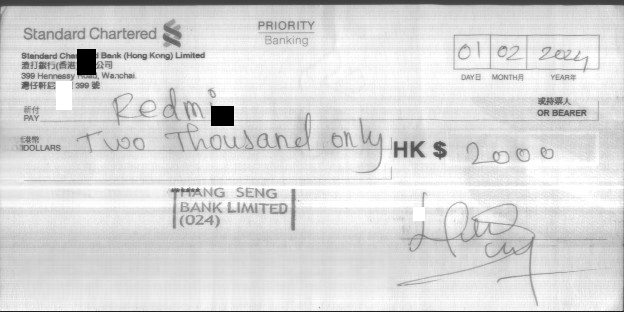 Standard Chartered
PRIORITY
Banking
Standard Bank (Hong Kong) Limited
渣打銀行(香港 公司
399 Hennessy Road, Wanchai
灣仔軒尼 399 號
01 02 2024
DAY日 MONTH月 YEAR年
祈付
PAY
Redmi
或持票人
OR BEARER
港幣
DOLLARS
Two Thousand only
HK $ 2000
HANG SENG
BANK LIMITED
(024)